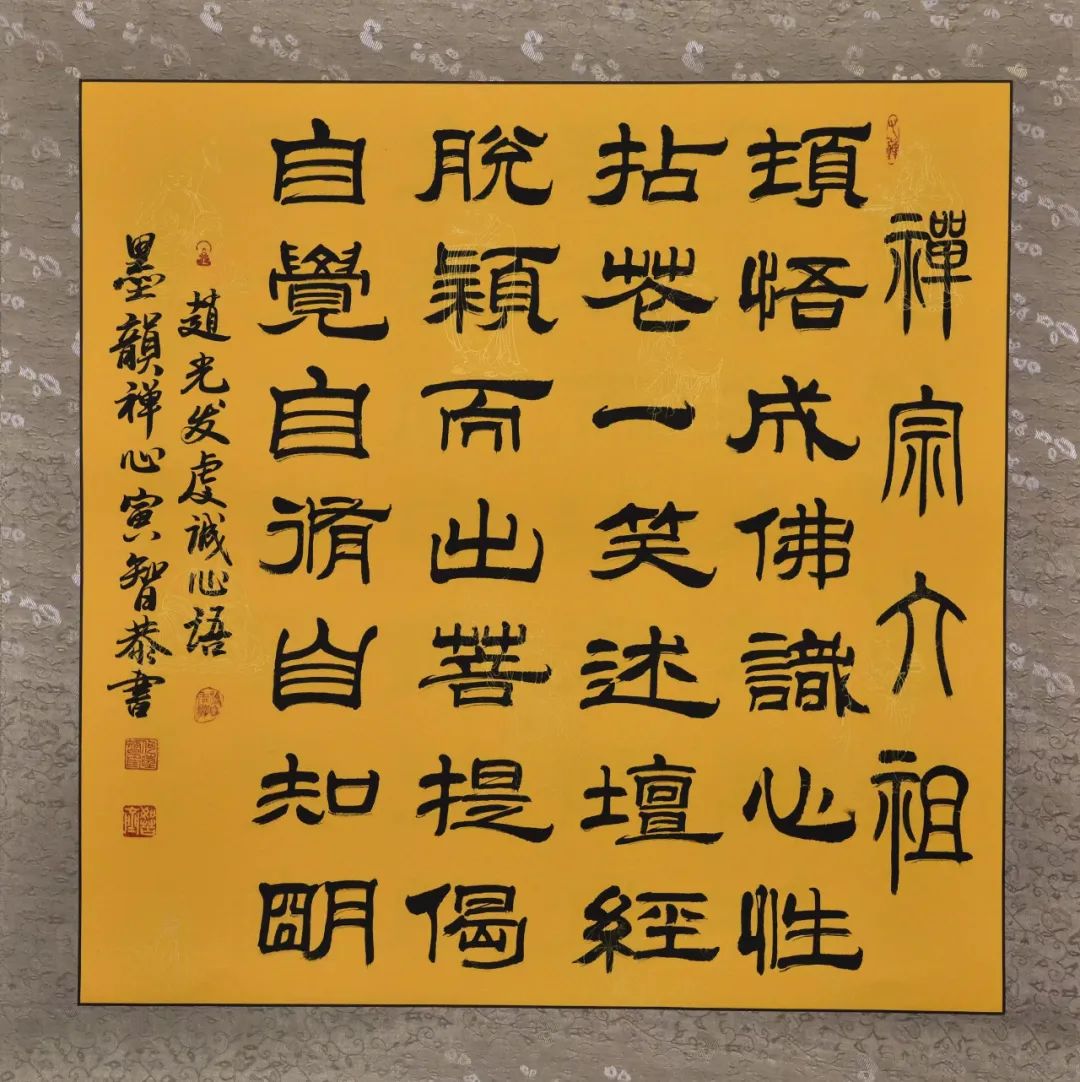 禪宗六祖
頓悟成佛識心性
拈花一笑述壇經
脫穎而出菩提偈
自覺自脩自知朙
趙光发虔誠心語
墨韻禅心寅智恭書